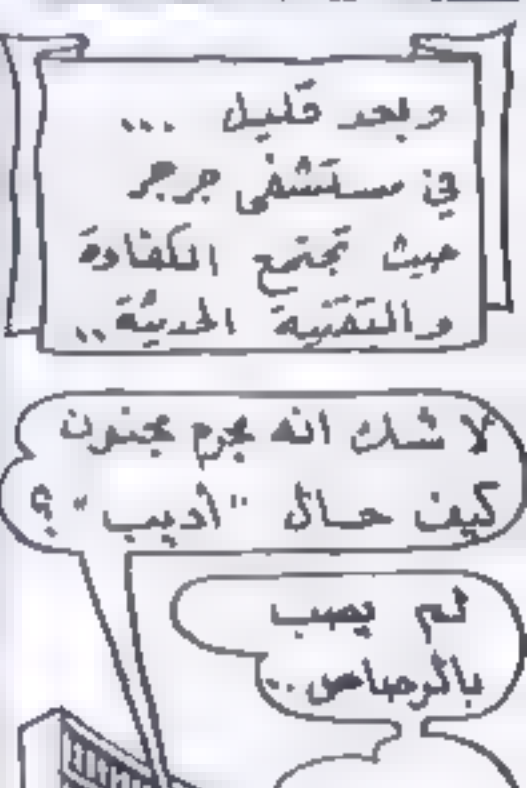 وبعد قليل ...
في مستشفى جرجر
حيث تجتمع الكفاءة
والتقنية الحديثة..
لا شك انه مجرم مجنون
كيف حال "أديب" ؟
لم يصب
بالرصاص..